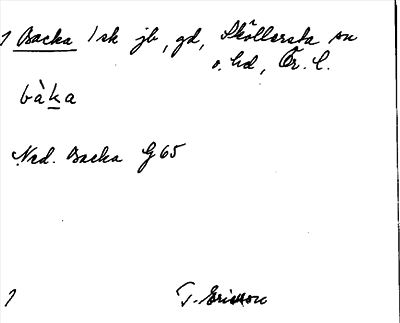 1 Backa 1 sk jb, gd, Sköllersta sn
o. hd, Ör. l.
bàka
Ned. Backa G 65
1 T. Ericson